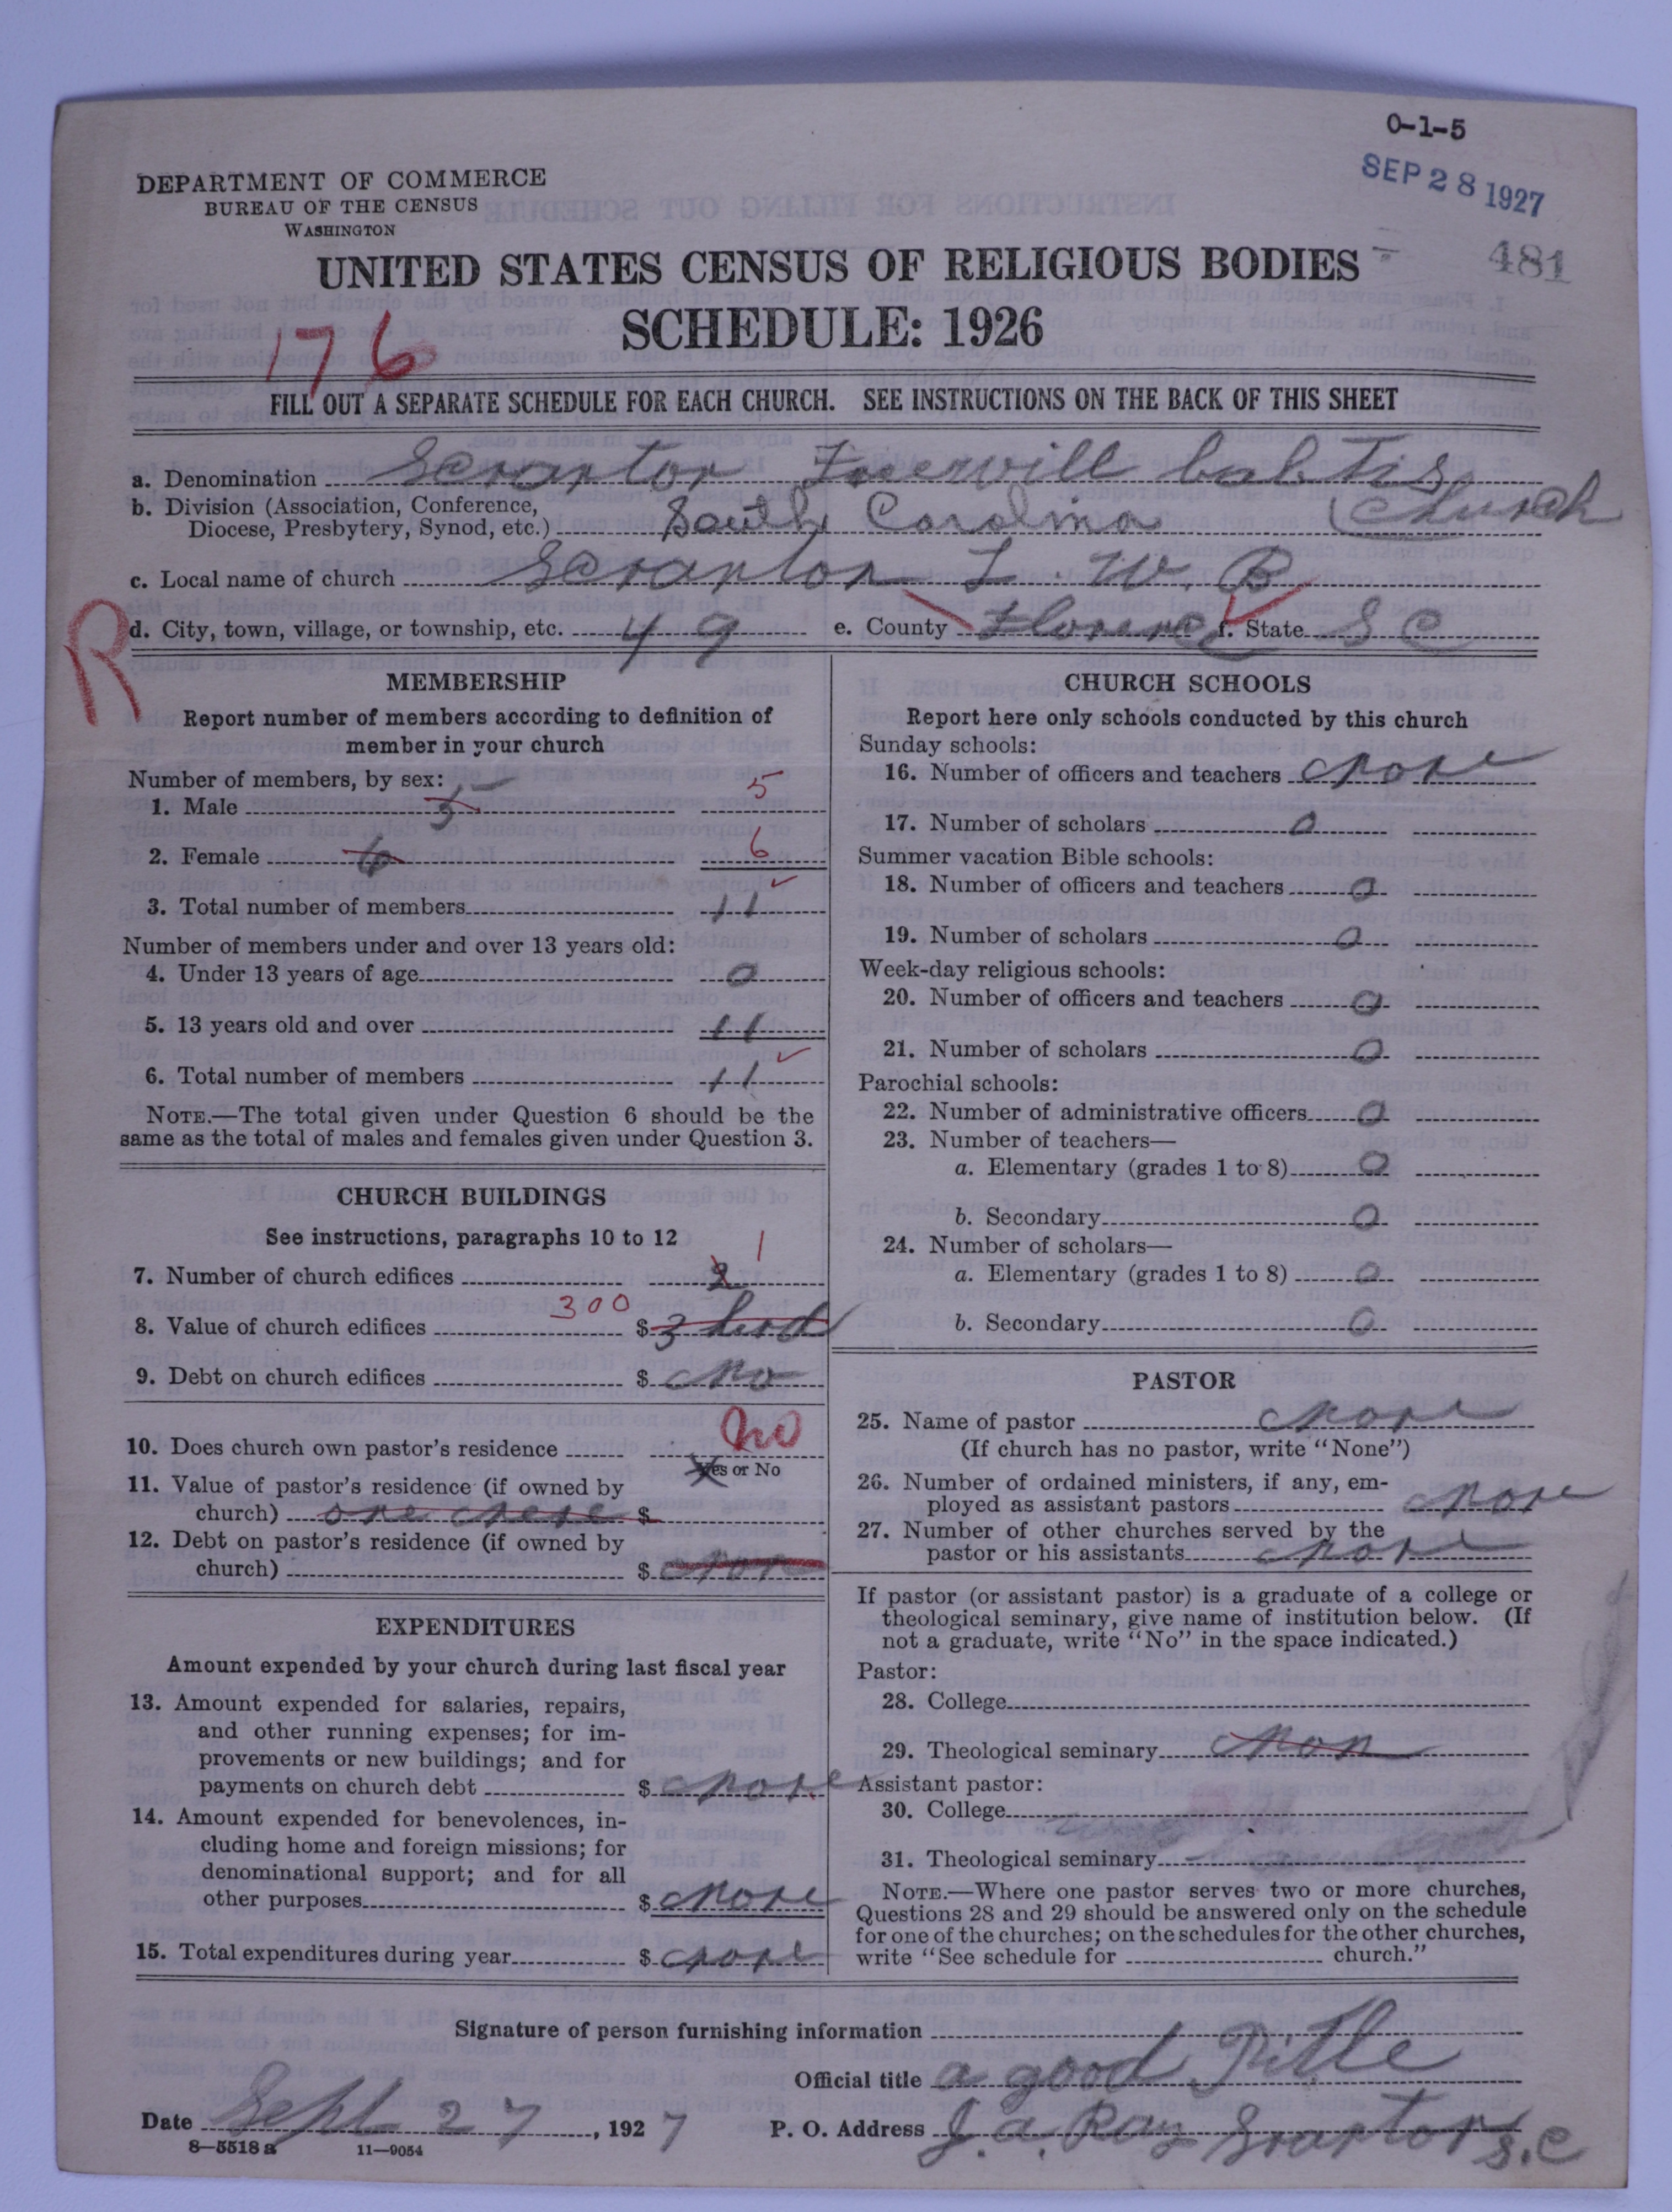 0-1-5
SEP 28 1927
481
DEPARTMENT OF COMMERCE
BUREAU OF THE CENSUS
WASHINGTON
UNITED STATES CENSUS OF RELIGIOUS BODIES
SCHEDULE: 1926
176
FILL OUT A SEPARATE SCHEDULE FOR EACH CHURCH. SEE INSTRUCTIONS ON THE BACK OF THIS SHEET
a. Denomination Scranton babtis
b. Division (Association, Conference, Church
Diocese, Presbytery, Synod, etc.) South Carolina
c. Local name of church Scranton W. B
R
d. City, town, village, or township, etc. 49 e. County Florence f. State S C
MEMBERSHIP
Report number of members according to definition of
member in your church
Number of members, by sex:
1. Male 5 5
2. Female 6 6
3. Total number of members 11
Number of members under and over 13 years old:
4. Under 13 years of age 0
5. 13 years old and over 11
6. Total number of members 11
NOTE.—The total given under Question 6 should be the
same as the total of males and females given under Question 3.
CHURCH BUILDINGS
See instructions, paragraphs 10 to 12
7. Number of church edifices 1
300
8. Value of church edifices $ 3
9. Debt on church edifices $ no
10. Does church own pastor's residence no
Yes or No
11. Value of pastor's residence (if owned by
church) one $
12. Debt on pastor's residence (if owned by
church) $ none
EXPENDITURES
Amount expended by your church during last fiscal year
13. Amount expended for salaries, repairs,
and other running expenses; for im-
provements or new buildings; and for
payments on church debt $ none
14. Amount expended for benevolences, in-
cluding home and foreign missions; for
denominational support; and for all
other purposes $ none
15. Total expenditures during year $ none
CHURCH SCHOOLS
Report here only schools conducted by this church
Sunday schools:
16. Number of officers and teachers none
17. Number of scholars 0
Summer vacation Bible schools:
18. Number of officers and teachers 0
19. Number of scholars 0
Week-day religious schools:
20. Number of officers and teachers 0
21. Number of scholars 0
Parochial schools:
22. Number of administrative officers 0
23. Number of teachers—
a. Elementary (grades 1 to 8) 0
b. Secondary 0
24. Number of scholars—
a. Elementary (grades 1 to 8) 0
b. Secondary 0
PASTOR
25. Name of pastor none
(If church has no pastor, write "None")
26. Number of ordained ministers, if any, em-
ployed as assistant pastors none
27. Number of other churches served by the
pastor or his assistants none
If pastor (or assistant pastor) is a graduate of a college or
theological seminary, give name of institution below. (If
not a graduate, write "No" in the space indicated.)
Pastor:
28. College
29. Theological seminary non
Assistant pastor:
30. College
31. Theological seminary
NOTE.—Where one pastor serves two or more churches,
Questions 28 and 29 should be answered only on the schedule
for one of the churches; on the schedules for the other churches,
write "See schedule for church."
Signature of person furnishing information
Official title a good Title
Date Sept 27, 1927 P. O. Address J. a. Ray Sranton S.C
8—5518 a 11—9054